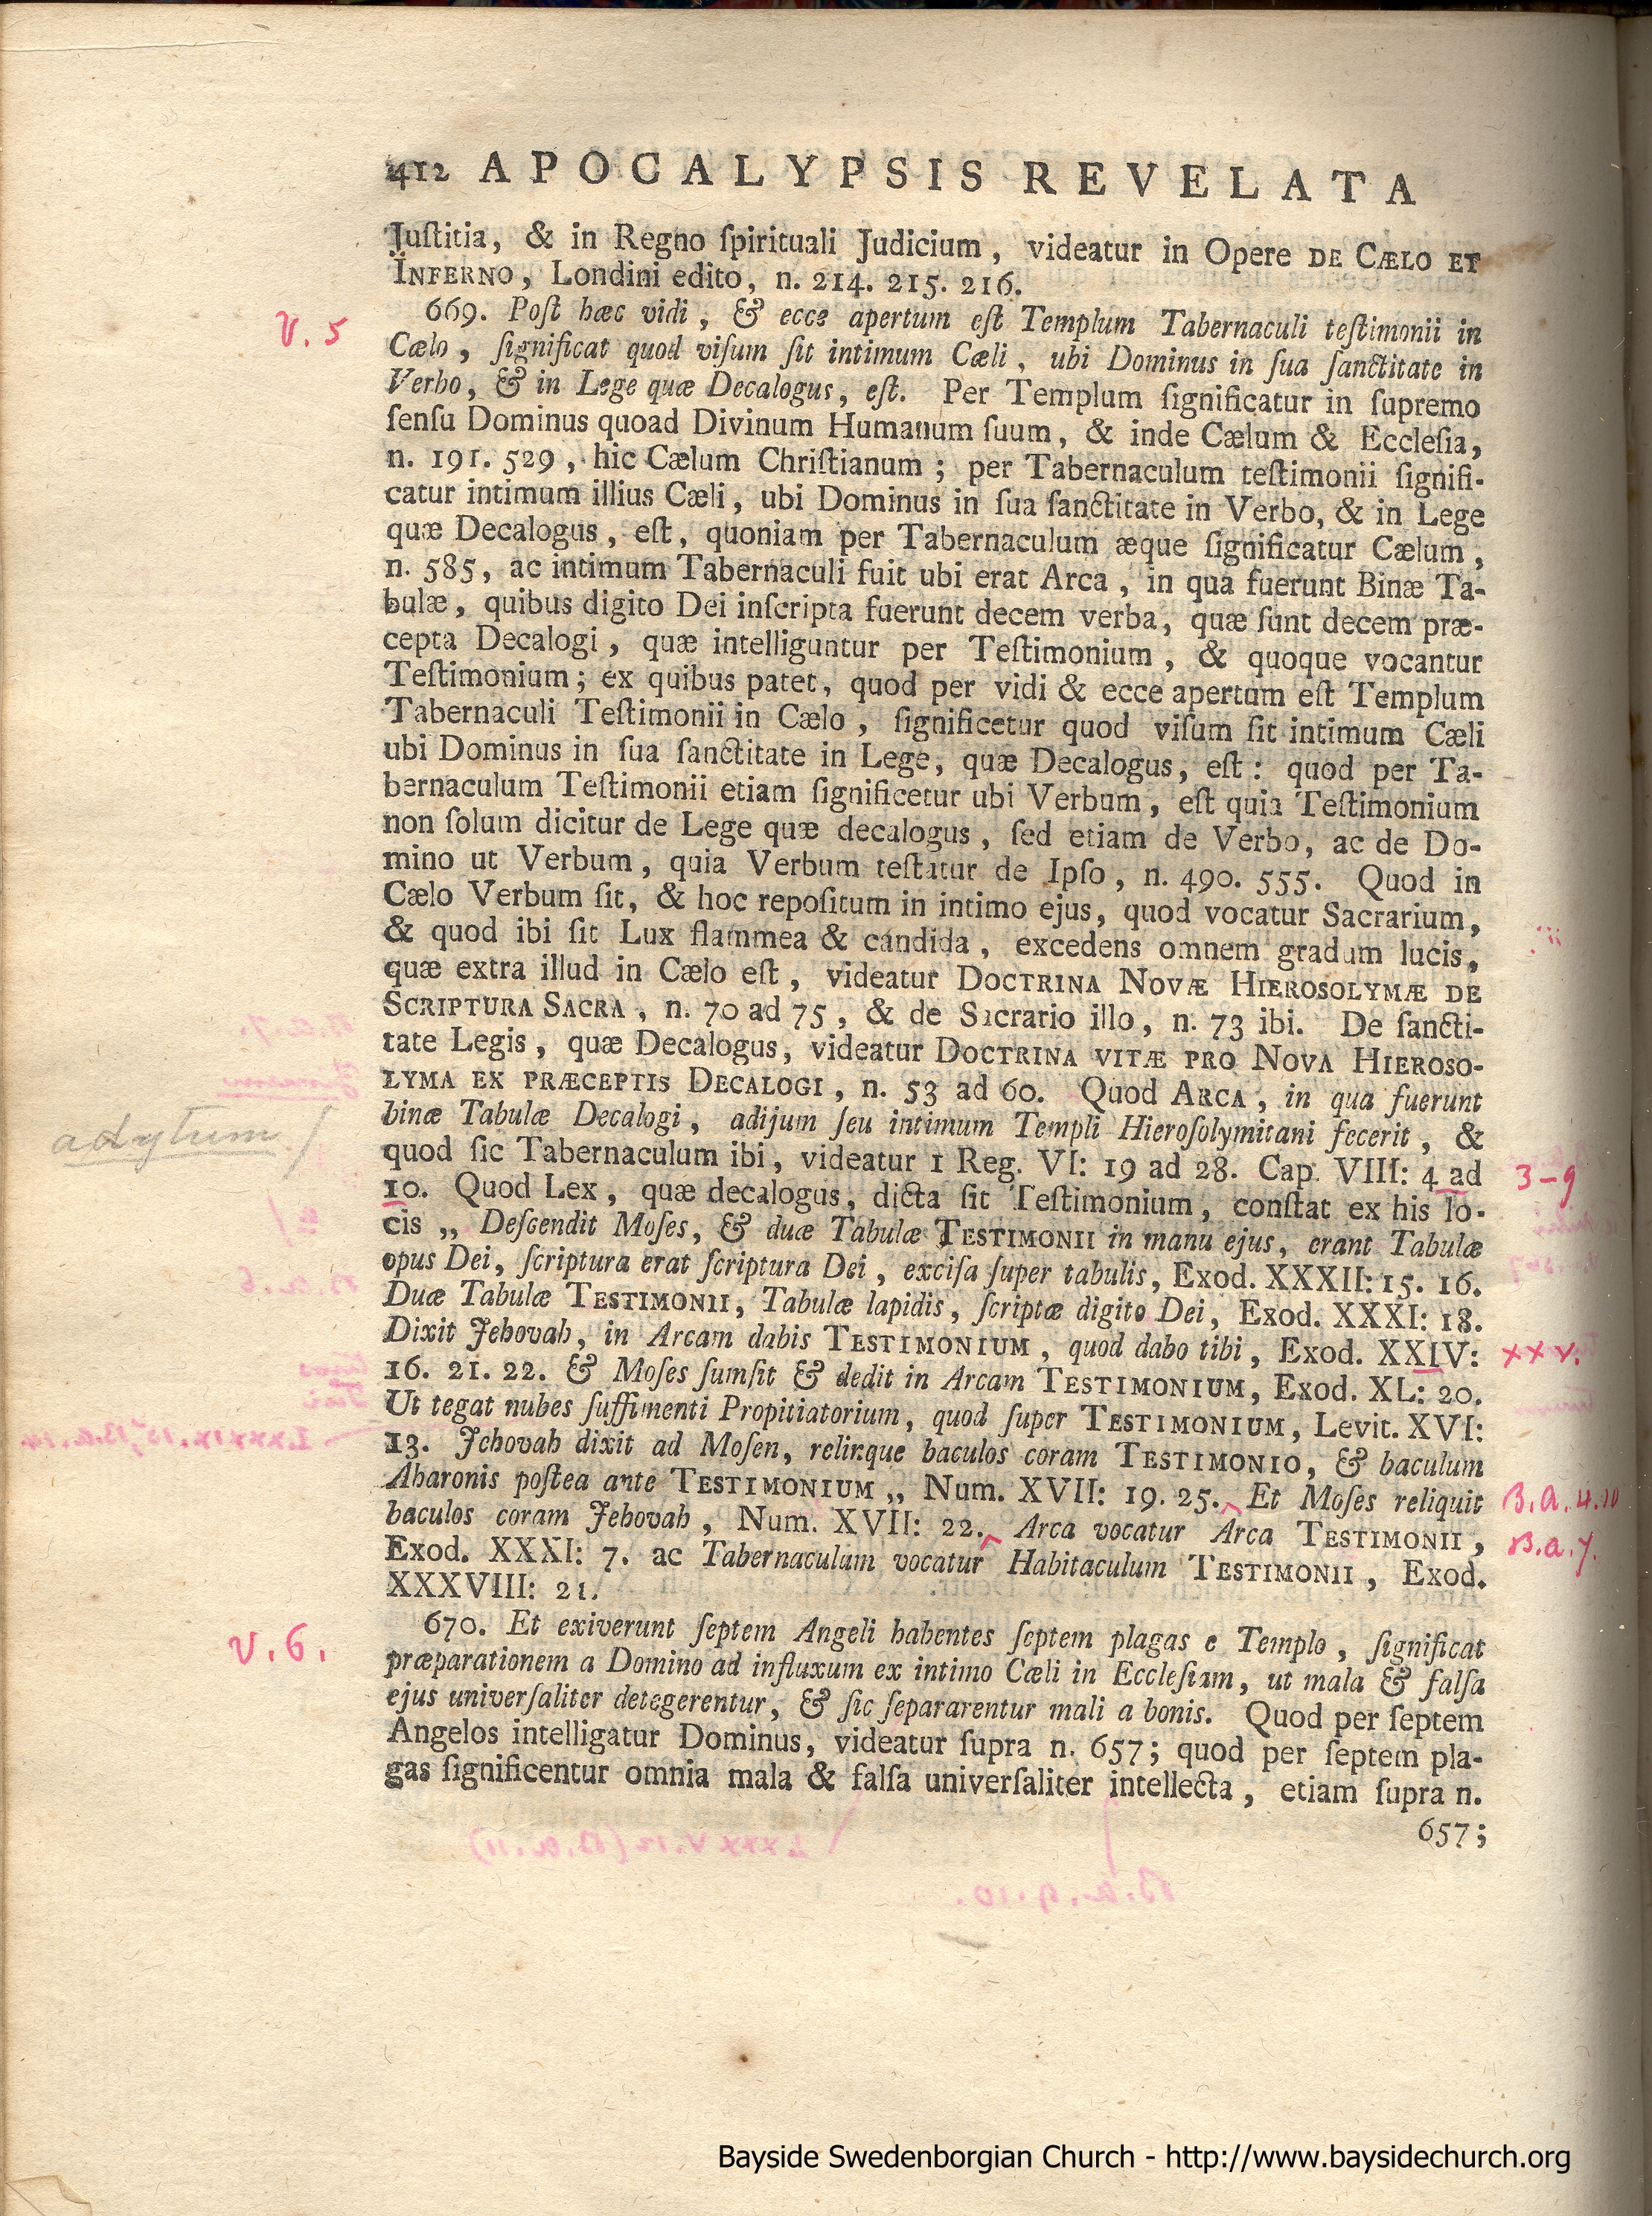 412 APOCALYPSIS REVELATA
Juſtitia, & in Regno ſpirituali Judicium, videatur in Opere DE CÆLO ET
INFERNO, Londini edito, n. 214. 215. 216.
V. 5
669. Poſt hæc vidi, & ecce apertum eſt Templum Tabernaculi teſtimonii in
Cælo, ſignificat quod viſum ſit intimum Cæli, ubi Dominus in ſua ſanctitate in
Verbo, & in Lege quæ Decalogus, eſt. Per Templum ſignificatur in ſupremo
ſenſu Dominus quoad Divinum Humanum ſuum, & inde Cælum & Eccleſia,
n. 191. 529, hic Cælum Chriſtianum; per Tabernaculum teſtimonii ſignifi-
catur intimum illius Cæli, ubi Dominus in ſua ſanctitate in Verbo, & in Lege
quæ Decalogus, eſt, quoniam per Tabernaculum æque ſignificatur Cælum,
n. 585, ac intimum Tabernaculi fuit ubi erat Arca, in qua fuerunt Binæ Ta-
bulæ, quibus digito Dei inſcripta fuerunt decem verba, quæ ſunt decem præ-
cepta Decalogi, quæ intelliguntur per Teſtimonium, & quoque vocantur
Teſtimonium; ex quibus patet, quod per vidi & ecce apertum eſt Templum
Tabernaculi Teſtimonii in Cælo, ſignificetur quod viſum ſit intimum Cæli
ubi Dominus in ſua ſanctitate in Lege, quæ Decalogus, eſt: quod per Ta-
bernaculum Teſtimonii etiam ſignificetur ubi Verbum, eſt quia Teſtimonium
non ſolum dicitur de Lege quæ decalogus, ſed etiam de Verbo, ac de Do-
mino ut Verbum, quia Verbum teſtatur de Ipſo, n. 490. 555. Quod in
Cælo Verbum ſit, & hoc repoſitum in intimo ejus, quod vocatur Sacrarium,
& quod ibi ſit Lux flammea & candida, excedens omnem gradum lucis,
quæ extra illud in Cælo eſt, videatur DOCTRINA NOVÆ HIEROSOLYMÆ DE
SCRIPTURA SACRA, n. 70 ad 75, & de Sacrario illo, n. 73 ibi. De ſancti-
tate Legis, quæ Decalogus, videatur DOCTRINA VITÆ PRO NOVA HIEROSO-
LYMA EX PRÆCEPTIS DECALOGI, n. 53 ad 60. Quod ARCA, in qua fuerunt
adytum /
binæ Tabulæ Decalogi, adijum ſeu intimum Templi Hieroſolymitani fecerit, &
quod ſic Tabernaculum ibi, videatur 1 Reg. VI: 19 ad 28. Cap. VIII: 4 ad 3-9
10. Quod Lex, quæ decalogus, dicta ſit Teſtimonium, conſtat ex his lo-
cis „ Deſcendit Moſes, & duæ Tabulæ TESTIMONII in manu ejus, erant Tabulæ
opus Dei, ſcriptura erat ſcriptura Dei, exciſa ſuper tabulis, Exod. XXXII: 15. 16.
Duæ Tabulæ TESTIMONII, Tabulæ lapidis, ſcriptæ digito Dei, Exod. XXXI: 18.
Dixit Jehovah, in Arcam dabis TESTIMONIUM, quod dabo tibi, Exod. XXIV: XXV.
16. 21. 22. & Moſes ſumſit & dedit in Arcam TESTIMONIUM, Exod. XL: 20.
Ut tegat nubes ſuffimenti Propitiatorium, quod ſuper TESTIMONIUM, Levit. XVI:
13. Jehovah dixit ad Moſen, relinque baculos coram TESTIMONIO, & baculum
Aharonis poſtea ante TESTIMONIUM „ Num. XVII: 19. 25. Et Moſes reliquit B.A. 4.10
baculos coram Jehovah, Num. XVII: 22. Arca vocatur Arca TESTIMONII, B.A. 7.
Exod. XXXI: 7. ac Tabernaculum vocatur Habitaculum TESTIMONII, Exod.
XXXVIII: 21.
V. 6.
670. Et exiverunt ſeptem Angeli habentes ſeptem plagas e Templo, ſignificat
præparationem a Domino ad influxum ex intimo Cæli in Eccleſiam, ut mala & falſa
ejus univerſaliter detegerentur, & ſic ſepararentur mali a bonis. Quod per ſeptem
Angelos intelligatur Dominus, videatur ſupra n. 657; quod per ſeptem pla-
gas ſignificentur omnia mala & falſa univerſaliter intellecta, etiam ſupra n.
657;
Bayside Swedenborgian Church - http://www.baysidechurch.org